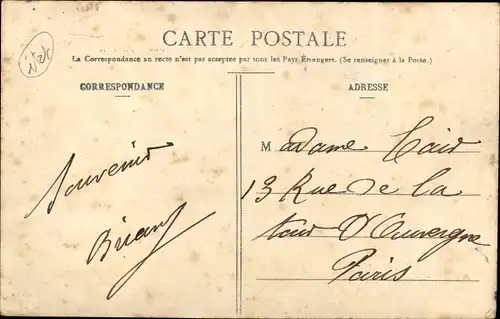 CARTE POSTALE
La Correspondance au recto n'est pas acceptée par tous les Pays Étrangers. (Se renseigner à la Poste.)
CORRESPONDANCE
ADRESSE
Souvenir
Madame
13 Rue de la
tour d'Auvergne
Paris